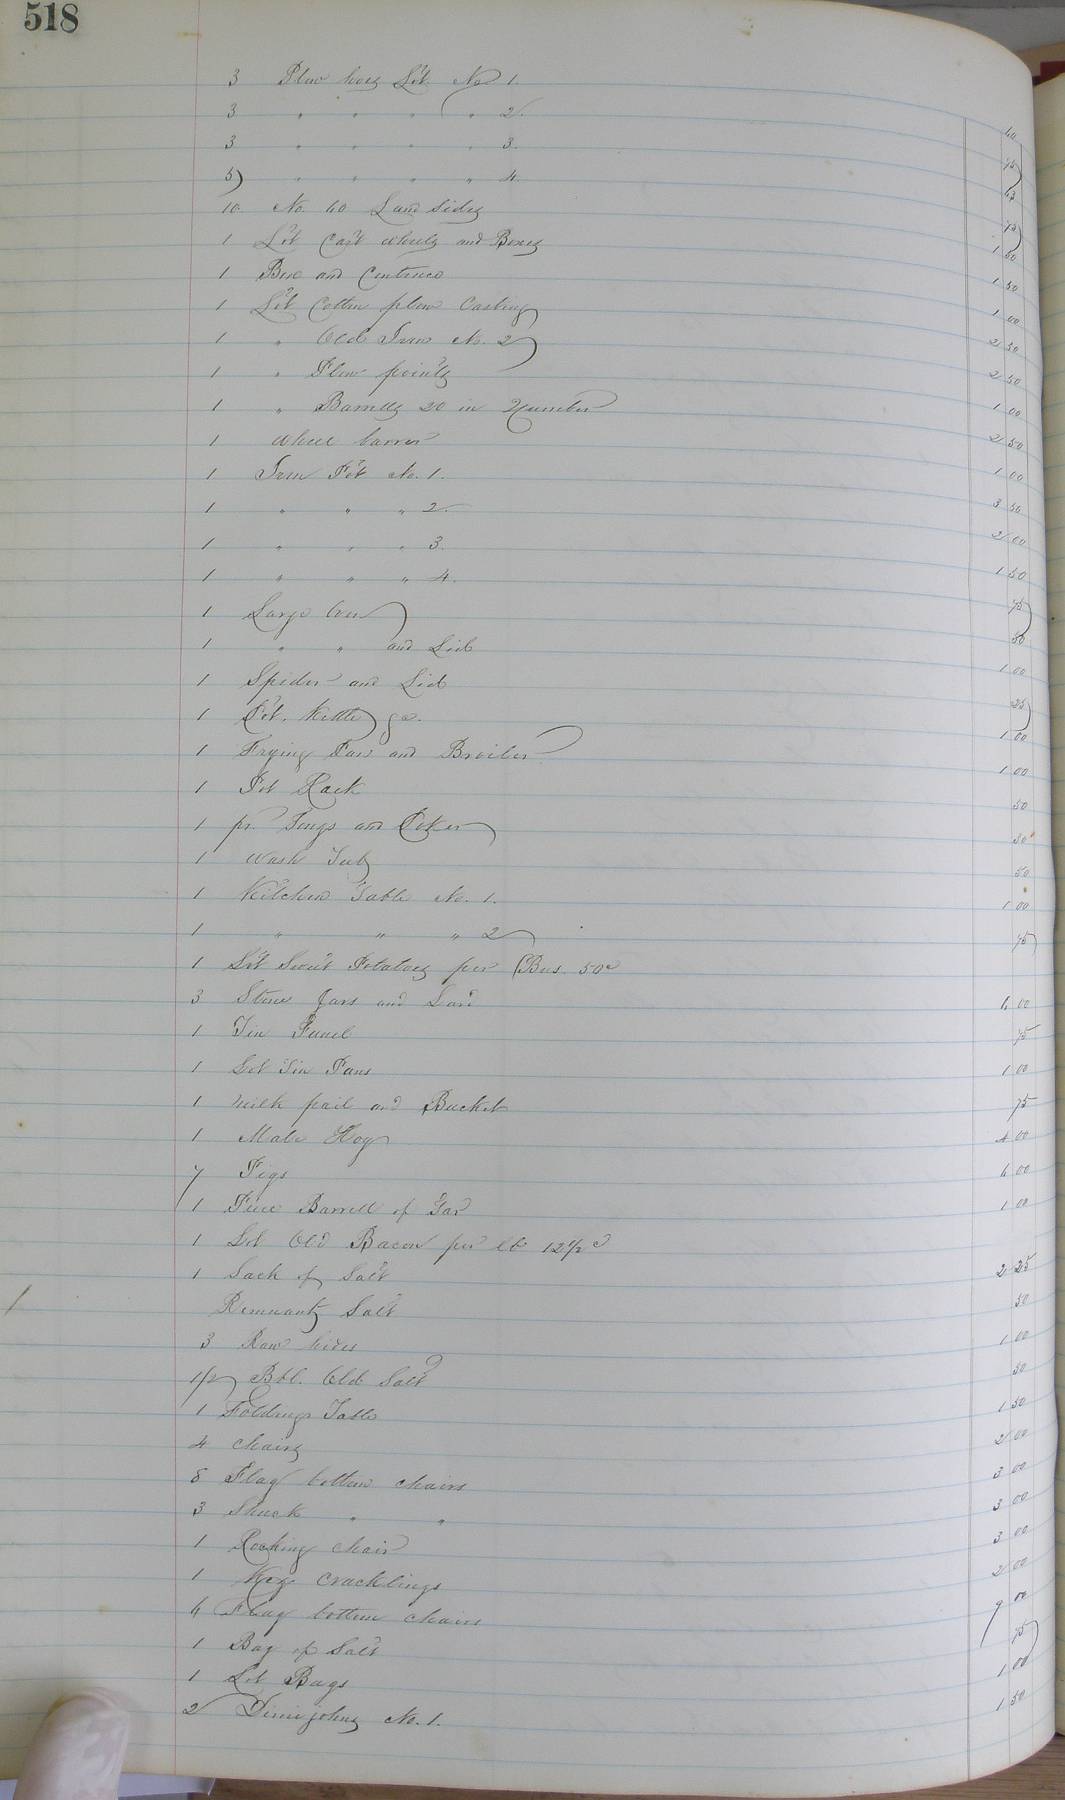 518
3 Plow hoes Lot No 1. 60
3 " " " " 2. 75
3 " " " " 3. 63
5 " " " " 4. 75
10 No. 60 Land Sides 1 50
1 Lot Cast wheels and Boxes 1 50
1 Box and Contence 1 00
1 Lot Cotton plow Casting 2 50
1 " Old Iron No. 2 2 50
1 " Plow points 1 00
1 " Barrells 20 in Number 2 50
1 wheel barrow 1 00
1 Iron Pot No. 1. 3 50
1 " " " 2. 2 00
1 " " " 3. 1 50
1 " " " 4. 75
1 Large Oven 50
1 " " and Lid 1 00
1 Spider and Lid 25
1 Pot, Kettle &c. 1 00
1 Frying Pan and Broiler 1 00
1 Pot Rack 50
1 pr. Tongs and Poker 50
1 wash Tub 50
1 Kitchen Table No. 1. 1 00
1 " " " 2 75
1 Lot Sweet Potatoes per Bus. 50c
3 Stone Jars and Lard 6 00
1 Tin Funel 75
1 Lot Tin Pans 1 00
1 milk pail and Bucket 75
1 Male Hog 4 00
7 Pigs 6 00
1 Barrell of Tar 1 00
1 Lot Old Bacon per lb 12 1/2 c
1 Sack of Salt 2 25
Remnants Salt 50
3 Raw hides 1 00
1/2 Bbl. Old Salt 50
1 Folding Table 1 50
4 chairs 2 00
8 Flag bottom chairs 3 00
3 Shuck " " 3 00
1 Rocking chair 3 00
1 Keg cracklings 2 00
6 Flag bottom chairs 9 00
1 Bag of Salt 75
1 Lot Bags 1 00
2 Dimijohns No. 1. 1 50